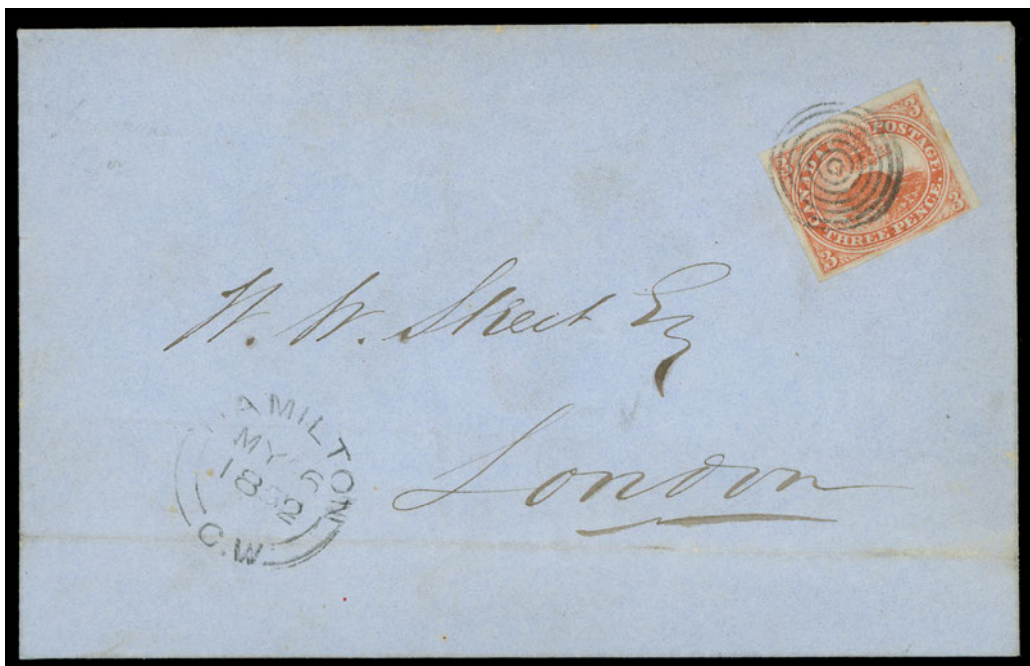 3 3
CANADA POSTAGE.
THREE PENCE.
3 3
W. W. Street Esq
London
HAMILTON
MY 6
1852
C.W.